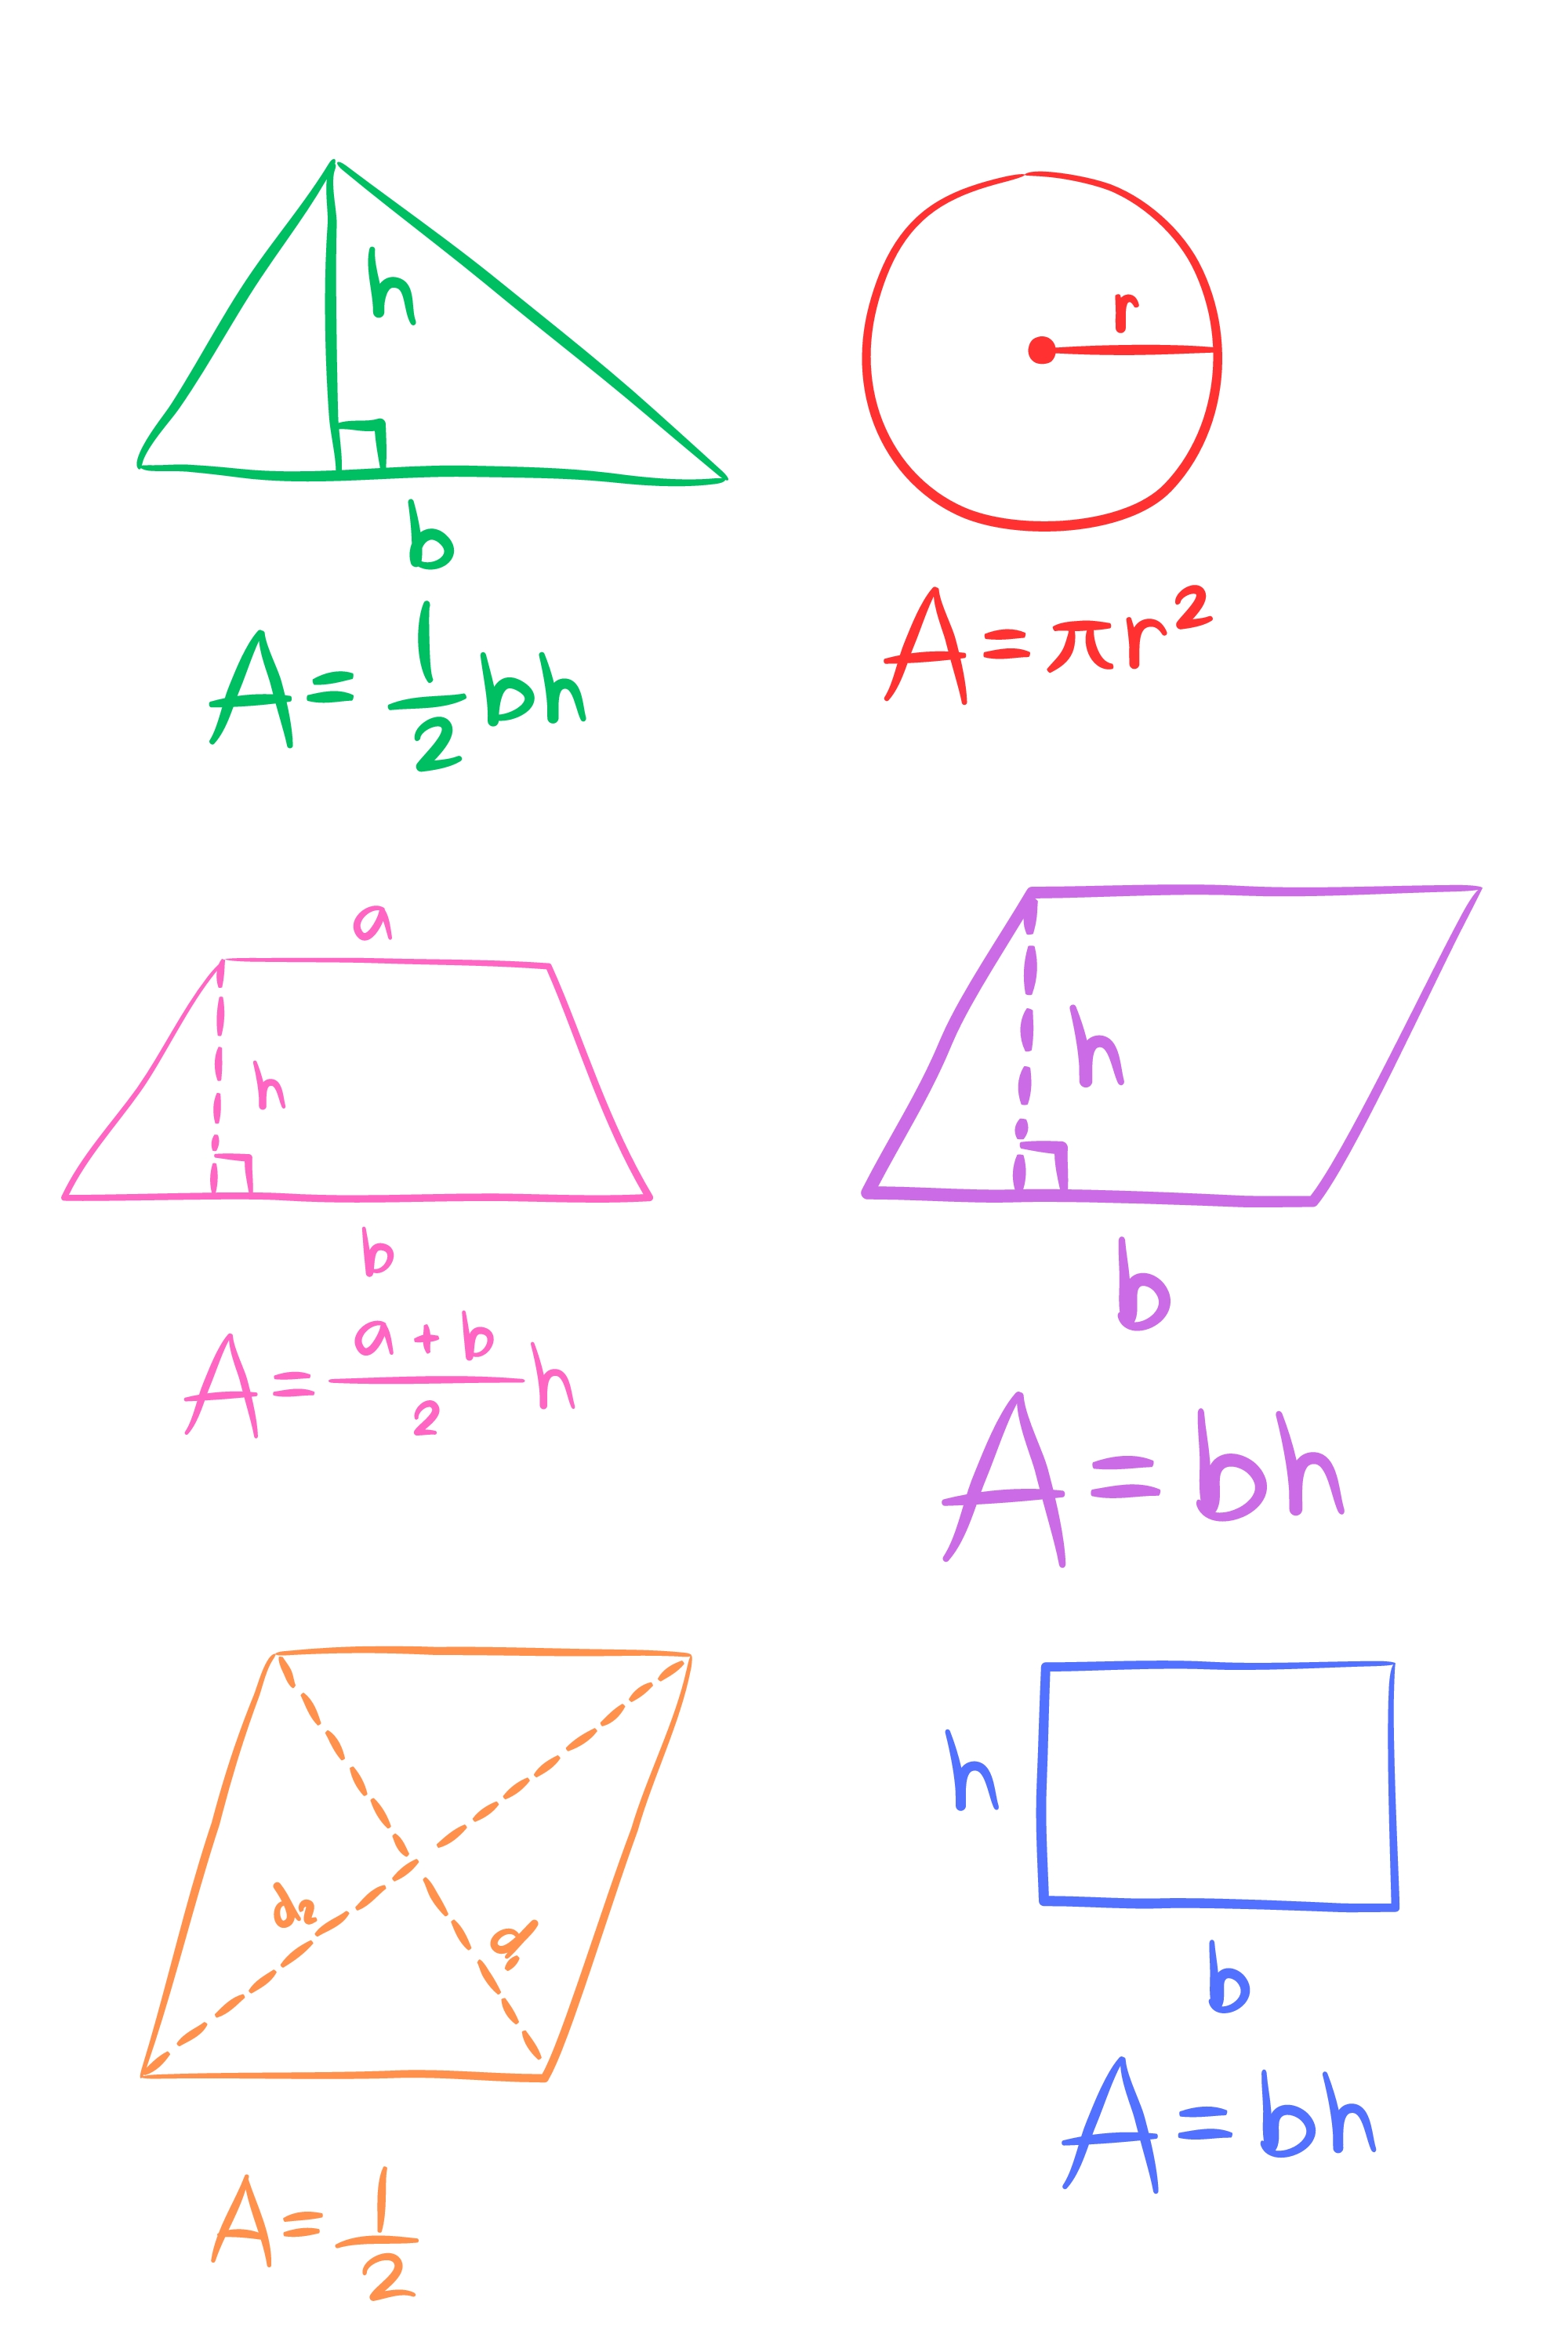 h
b
A = 1/2 bh
r
A = πr²
a
h
b
A = a + b/2 h
h
b
A = bh
d₂
d₁
A = 1/2
h
b
A = bh